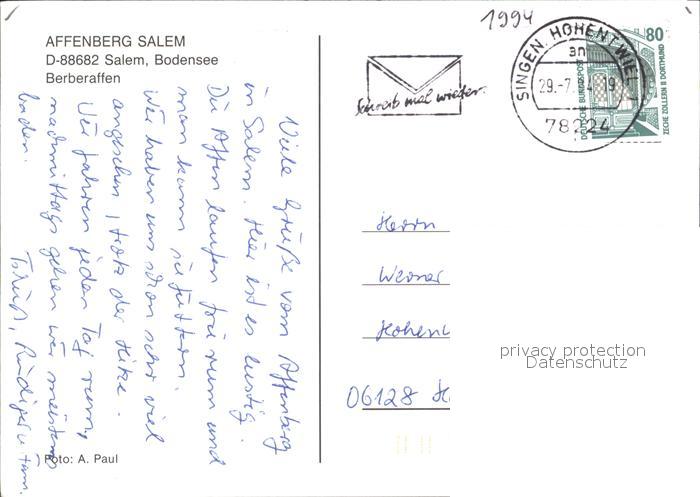 AFFENBERG SALEM
D-88682 Salem, Bodensee
Berberaffen
Viele Grüße vom Affenberg
in Salem. Hier ist es lustig.
Die Affen laufen frei rum und
man kann sie füttern.
Wir haben uns schon sehr viel
angesehen, trotz der Hitze.
Wir fahren jeden Tag rum,
nachmittags gehen wir meistens
baden.
Tschüß, Rüdiger u. Fam.
Foto: A. Paul
1994
Schreib mal wieder
SINGEN, HOHENTWIEL
an
29.-7.
78224
80
DEUTSCHE BUNDESPOST
ZECHE ZOLLERN II DORTMUND
Herrn
Werner
06128
privacy protection
Datenschutz